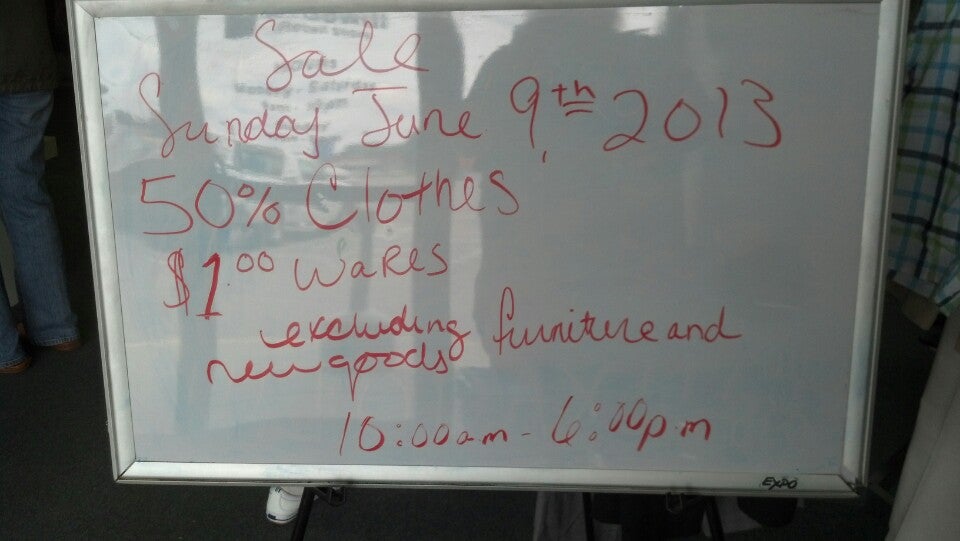 Sale
Sunday June 9th 2013
50% Clothes
$1.00 WaRes
excluding furniture and
new goods
10:00am - 6:00p.m
EXPO